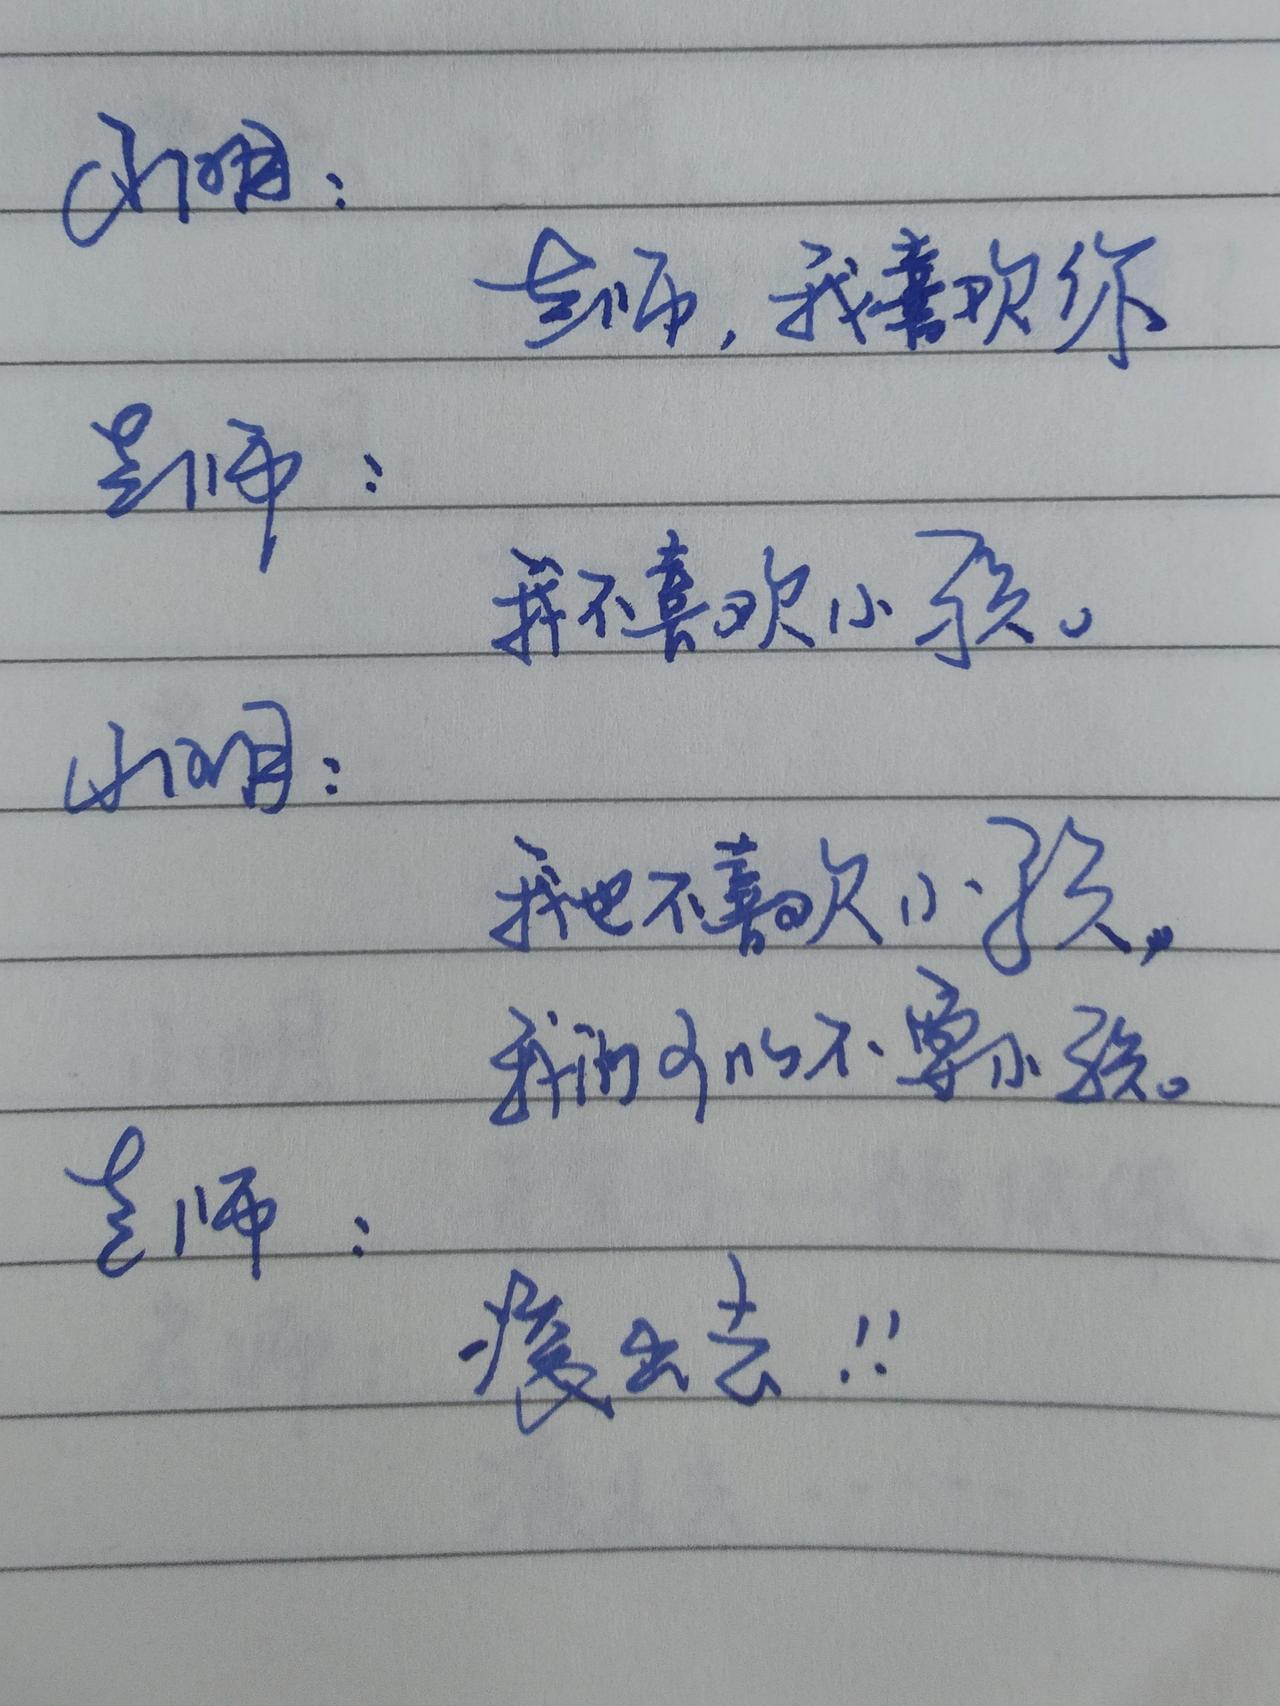 小明：
老师，我喜欢你
老师：
我不喜欢小孩。
小明：
我也不喜欢小孩，
我们可以不要小孩。
老师：
滚出去!!